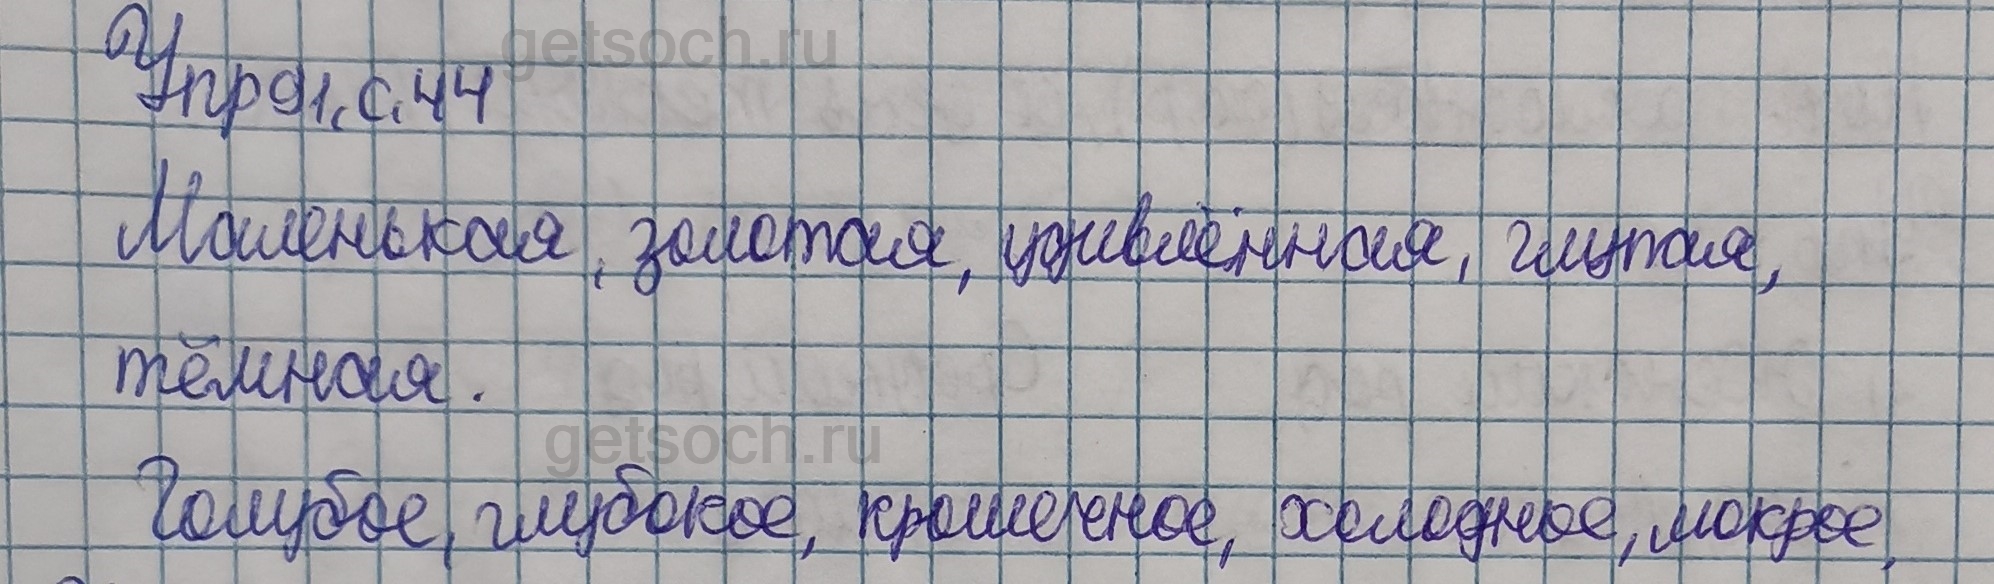 getsoch.ru
Упр91, с. 44
Маленькая, золотая, удивлённая, глупая,
тёмная.
getsoch.ru
Голубое, глубокое, крошечное, холодное, мокрое,